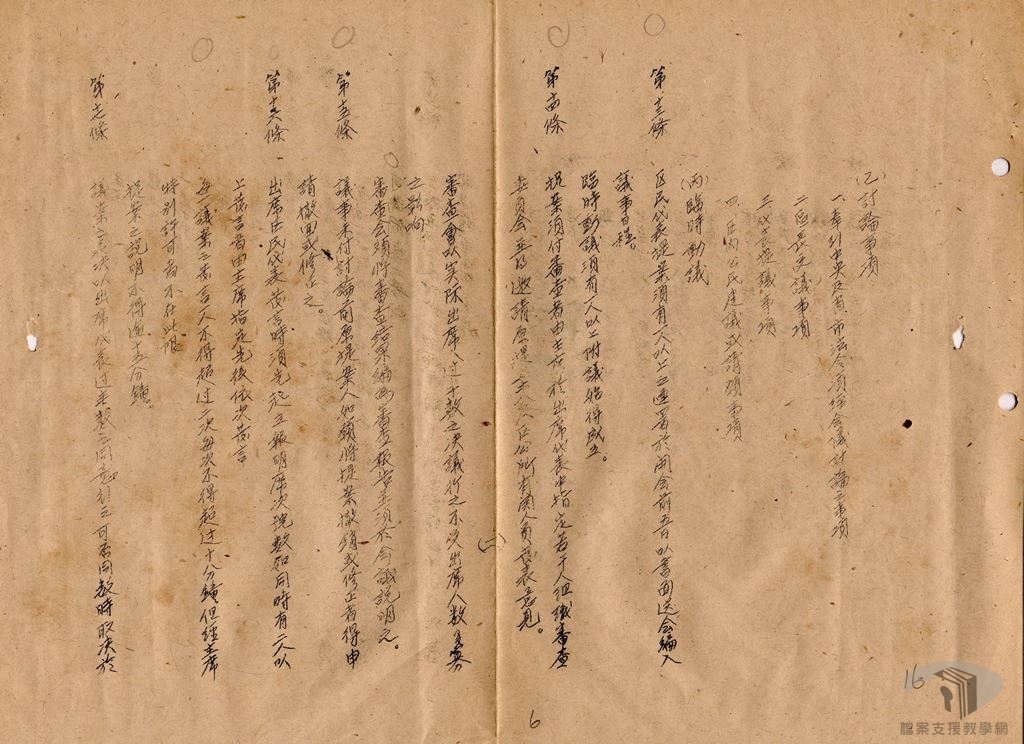 (乙)討論事項
一、奉行中央及省市法令須經會議討論之事項
二、區長交議事項
三、代表提議事項
四、區內公民建議或請願事項
(丙)臨時動議
第十三條 區民代表提案須有二人以上之連署於開會前五日以書面送会編入
議事日程。
臨時動議須有一人以上附議始得成立。
第十四條 提案須付審查者由主席於出席代表中指定若干人組織審查
委員会並得邀請原提案人及公所有關人員發表意見。
(二)
審查會以實際出席過半數之決議行之不受出席人數多寡
之影响。
審查会須將審查結果編為審查報告並須於会議說明之。
第十五條 議事未付討論前原提案人如願將提案撤銷或修正者得申
請撤回或修正之。
第十六條 出席區民代表發言時須先起立報明席次號數如同時有二人以
上發言者由主席指定先後依次發言
每一議案之發言一人不得超过二次每次不得超过十分鐘但經主席
特別許可者不在此限
提案之說明不得過十五分鐘。
第十七條 議案之表決以出席代表过半数之同意行之可否同数時取決於
6
16
檔案支援教學網